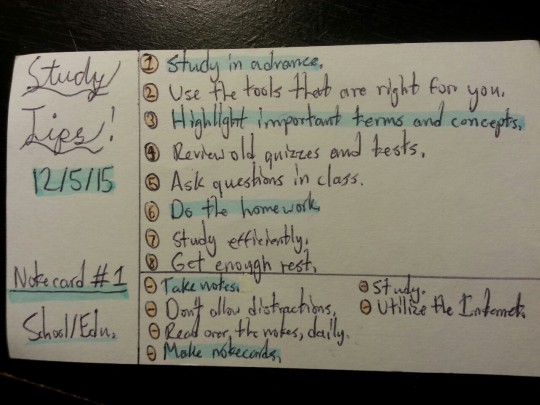 Study
Tips!
12/5/15
Notecard #1
School/Edu.
1 Study in advance.
2 Use the tools that are right for you.
3 Highlight important terms and concepts.
4 Review old quizzes and tests.
5 Ask questions in class.
6 Do the homework
7 Study efficiently.
8 Get enough rest.
- Take notes.
- Don't allow distractions.
- Read over, the notes, daily.
- Make notecards.
- Study.
- Utilize the Internet.